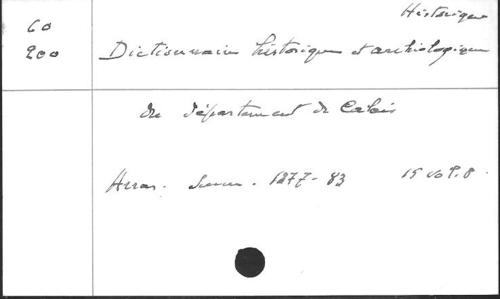 Historique
60
200 Dictionnaire historique et archéologique
du département de Calais
Arras. Sueur. 1877-83 15 vol 8.